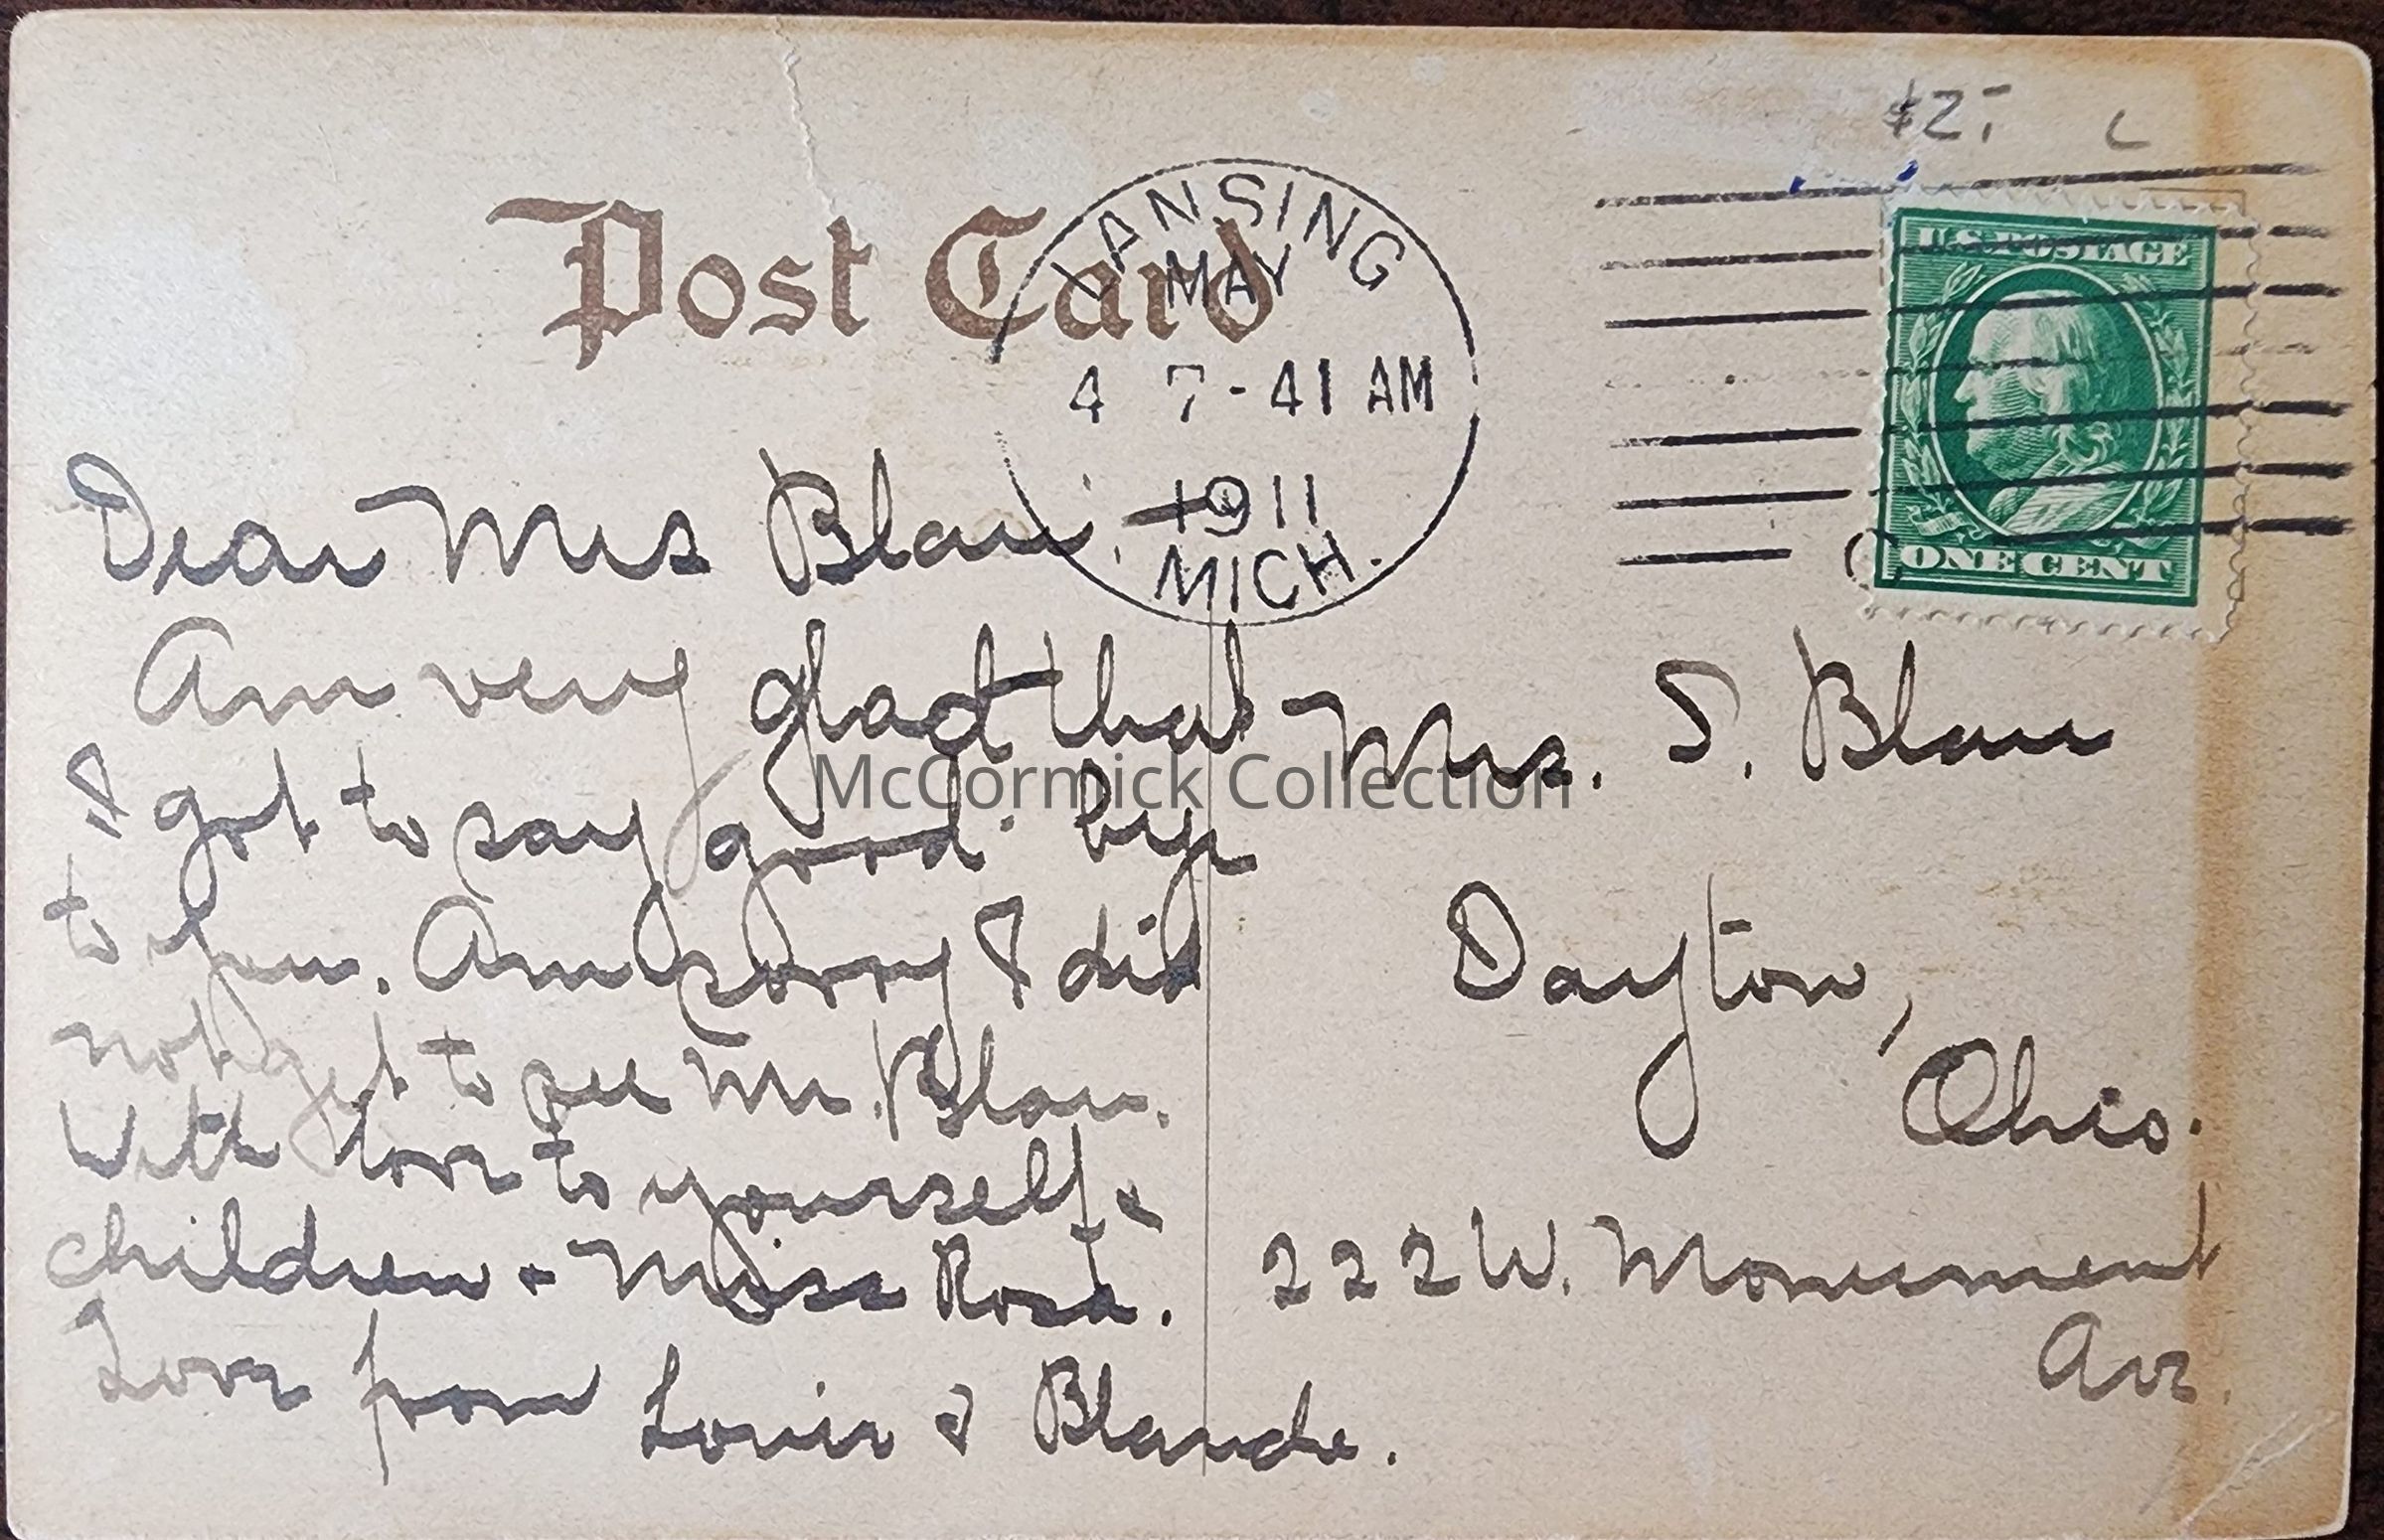 $2.-
Post Card
LANSING
MAY
4 7-41 AM
1911
MICH.
U.S. POSTAGE
ONE CENT
Dear Mrs Blau, —
Am very glad that
I got to say good-bye
to you. Am sorry I did
not get to see Mr. Blau.
With love to yourself &
children & Miss Rosa.
Love from Louis & Blanche.
Mrs. S. Blau
Dayton,
Ohio.
222 W. Monument
Ave.
McCormick Collection